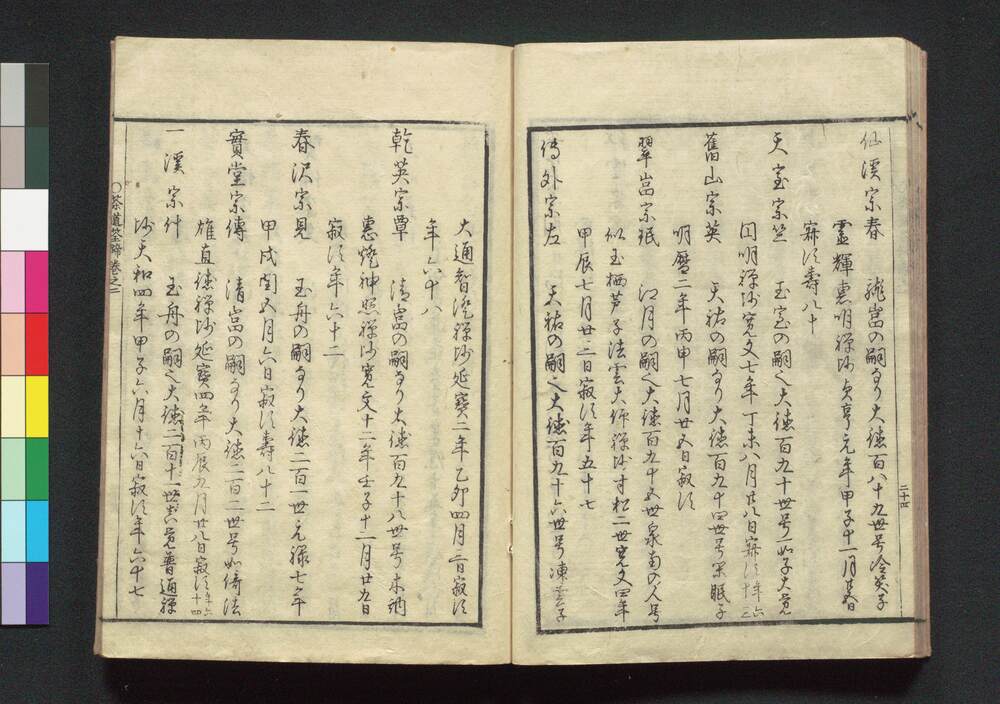 二十四
仙溪宗春　龍嵓の嗣なり大徳百八十九世号冷笑子
霊輝惠明禅師貞享元年甲子十一月
寂す壽八十
天室宗竺　玉室の嗣也大徳百九十世号一如子大覚
圓明禅師寛文七年丁未八月廿八日寂す年六十三
舊山宗英　天祐の嗣なり大徳百九十四世号眠子
明暦二年丙申七月廿五日寂す
翠嵓宗珉　江月の嗣也大徳百九十五世泉南の人号
似玉栖芦子法雲大師禅師寸松二世寛文四年
甲辰七月廿三日寂す年五十七
傳外宗左　天祐の嗣也大徳百九十六世号凍雲子
大通智澄禅師延寶二年乙卯四月二日寂す
年六十八
乾英宗單　清嵓の嗣なり大徳百九十八世号末訥
惠燈神照禅師寛文十二年壬子十一月廿九日
寂す年六十二
春沢宗晃　玉舟の嗣なり大徳二百一世元禄七年
甲戌閏五月六日寂す壽八十二
實堂宗傳　清嵓の嗣なり大徳二百二世号如倚法
雄直徳禅師延寶四年丙辰九月廿八日寂す年六十四
一溪宗什　玉舟の嗣也大徳二百十一世真覚普通禅
師天和四年甲子六月十六日寂す年六十七
〇茶道筌蹄巻之二